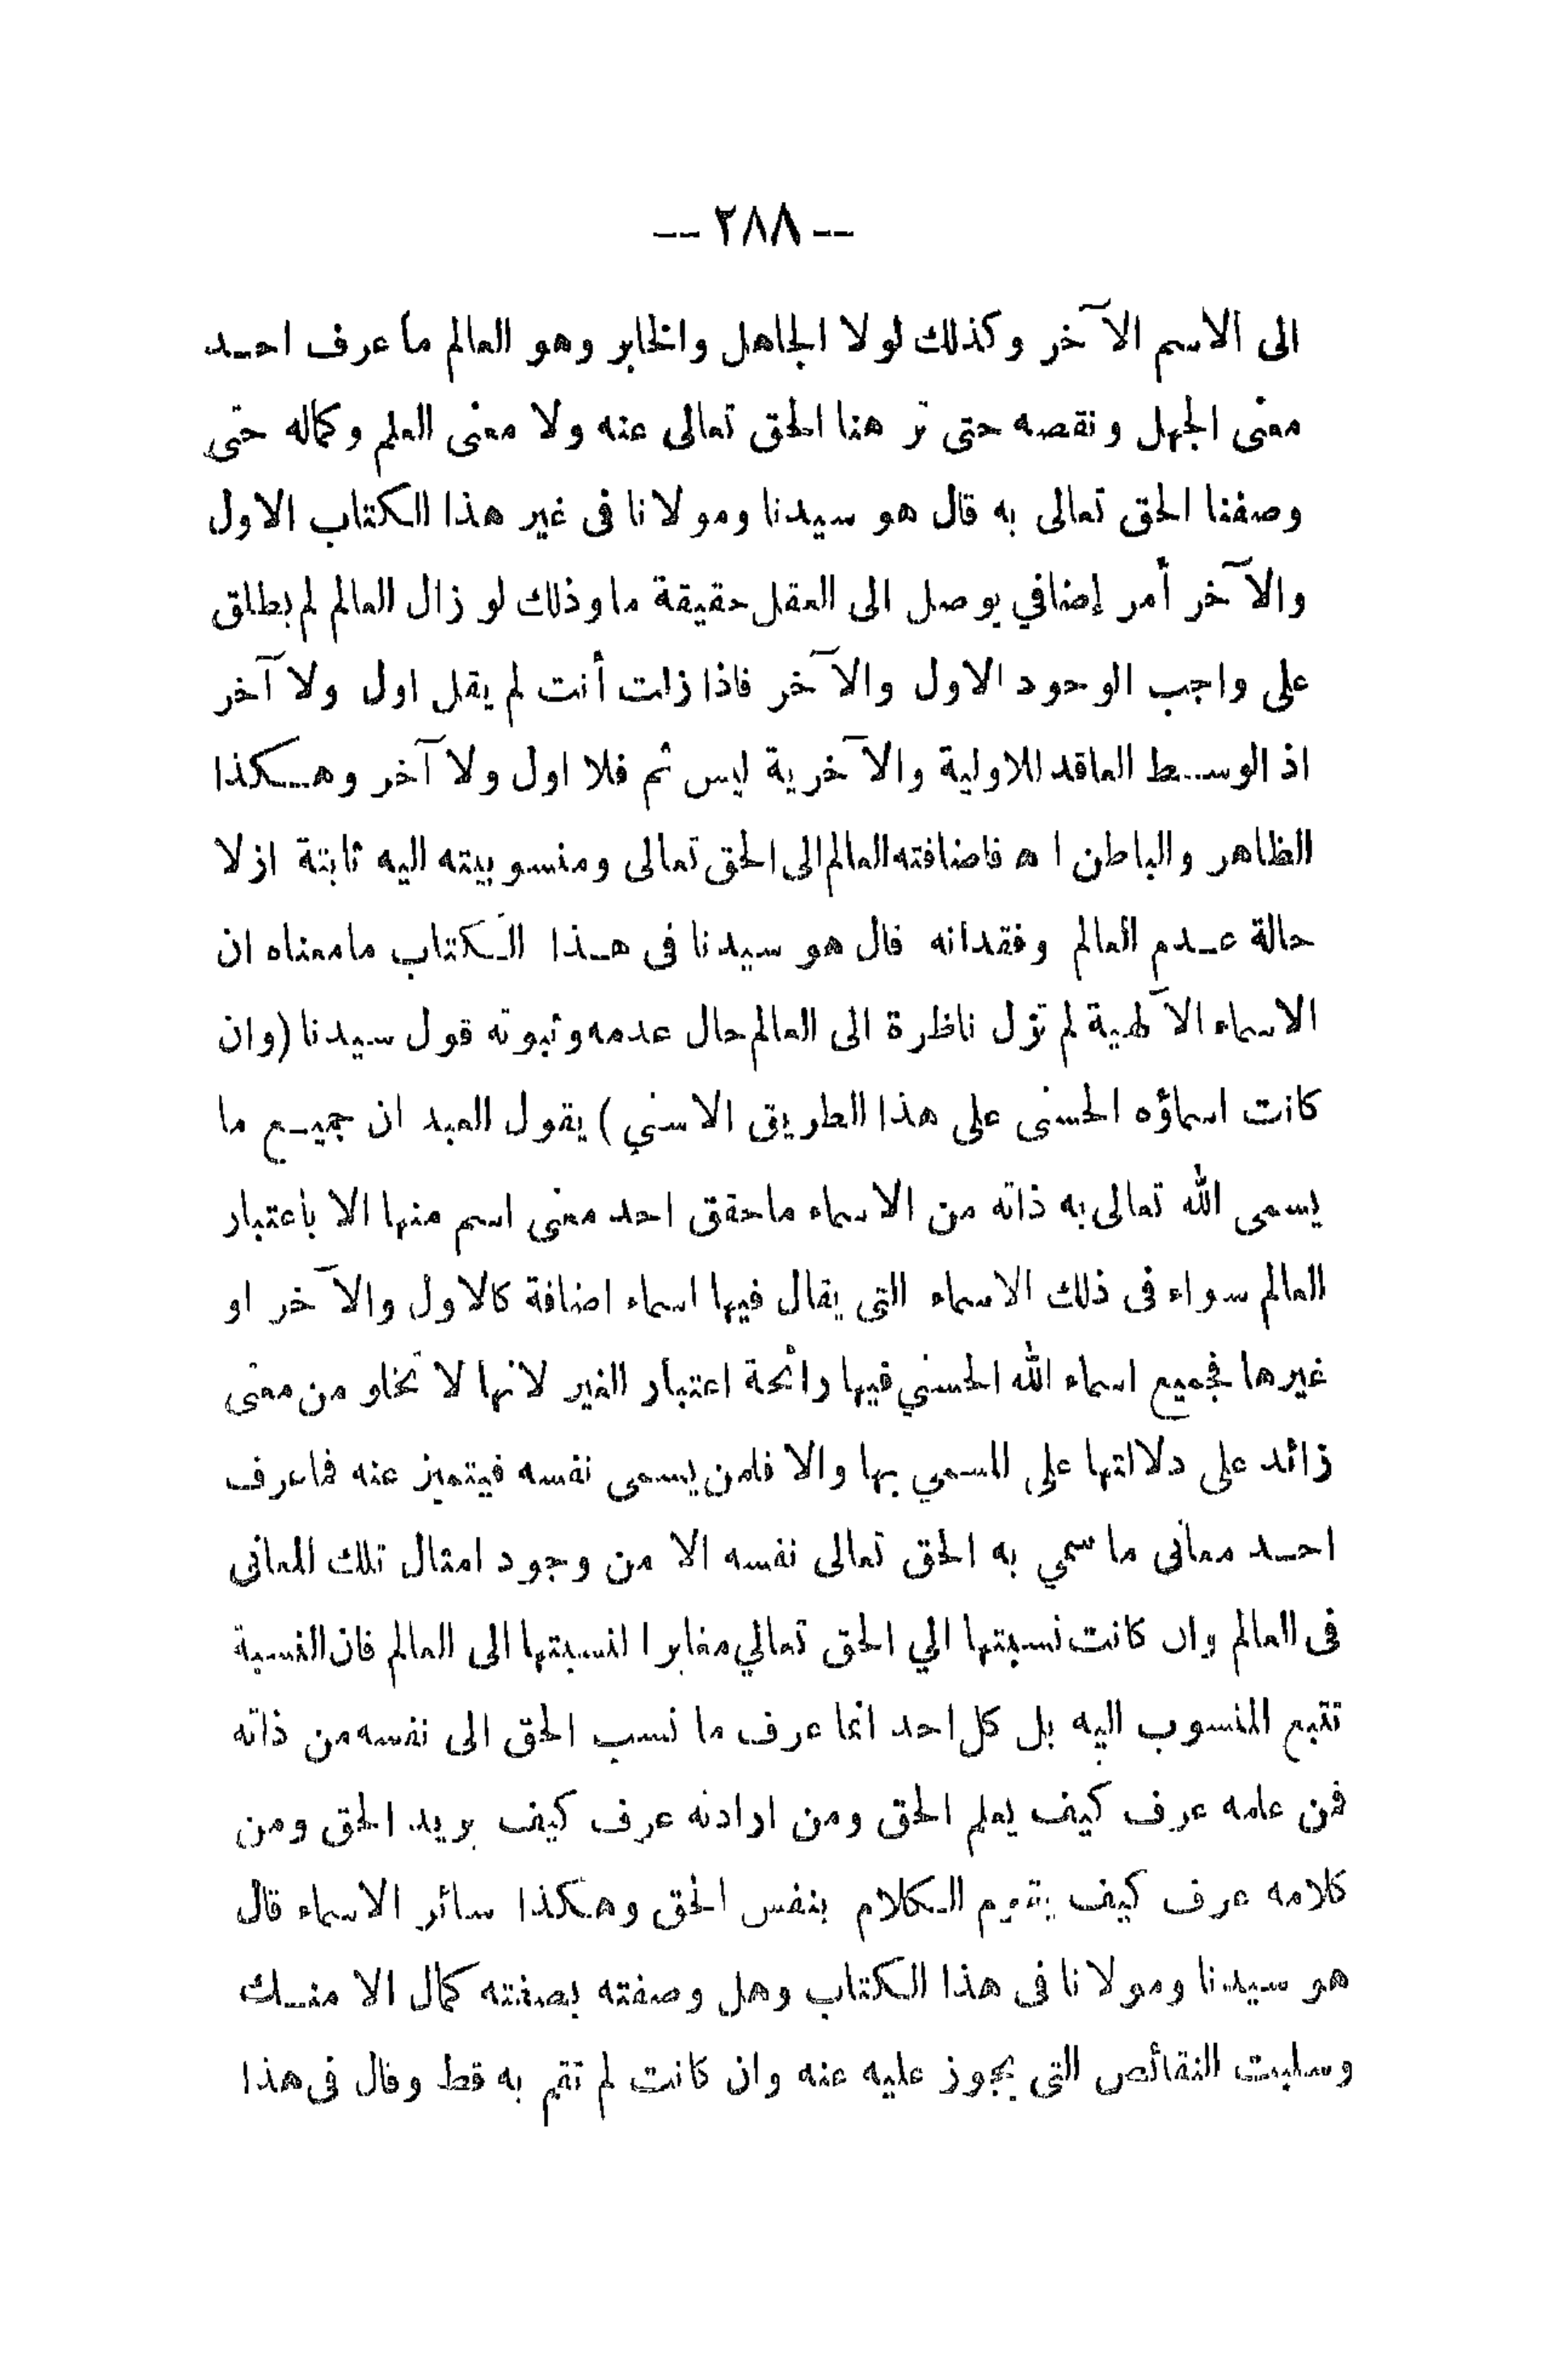 -- ٢٨٨ --
الى الاسم الآخر وكذلك لولا الجاهل والخابر وهو العالم ما عرف احد
معنى الجهل ونقصه حتى تر هنا الحق تعالى عنه ولا معنى العلم وكماله حتى
وصفنا الحق تعالى به قال هو سيدنا ومولانا فى غير هذا الكتاب الاول
والآخر أمر إضافي يوصل الى العقل حقيقة ما وذلك لو زال العالم لم يطلق
على واجب الوحود الاول والآخر فاذا زلت أنت لم يقل اول ولا آخر
اذ الوسط العاقد للاولية والآخرية ليس ثم فلا اول ولا آخر وهكذا
الظاهر والباطن ا ه فاضافته العالم الى الحق تعالى ومنسوبيته اليه ثابتة ازلا
حالة عدم العالم وفقدانه قال هو سيدنا فى هذا الكتاب مامعناه ان
الاسماء الآلهية لم تزل ناظرة الى العالم حال عدمه وثبوته قول سيدنا (وان
كانت اسماؤه الحسنى على هذا الطريق الاسني) يقول العبد ان جميع ما
يسمى الله تعالى به ذاته من الاسماء ماحقق احد معنى اسم منها الا باعتبار
العالم سواء فى ذلك الاسماء التى يقال فيها اسماء اضافة كالاول والآخر او
غيرها فجميع اسماء الله الحسني فيها رائحة اعتبار الغير لانها لا تخلو من معنى
زائد على دلالتها على المسمي بها والا فلمن يسمى نفسه فيتميز عنه فما عرف
احد معانى ما سمي به الحق تعالى نفسه الا من وجود امثال تلك المعانى
فى العالم وان كانت نسبتها الي الحق تعالي مغايرا لنسبتها الى العالم فان النسبة
تتبع المنسوب اليه بل كل احد انما عرف ما نسب الحق الى نفسه من ذاته
فمن علمه عرف كيف يعلم الحق ومن ارادته عرف كيف يريد الحق ومن
كلامه عرف كيف يقوم الكلام بنفس الحق وهكذا سائر الاسماء قال
هو سيدنا ومولانا فى هذا الكتاب وهل وصفته بصفته كمال الا منك
وسلبت النقائص التى يجوز عليه عنه وان كانت لم تقم به قط وقال فى هذا